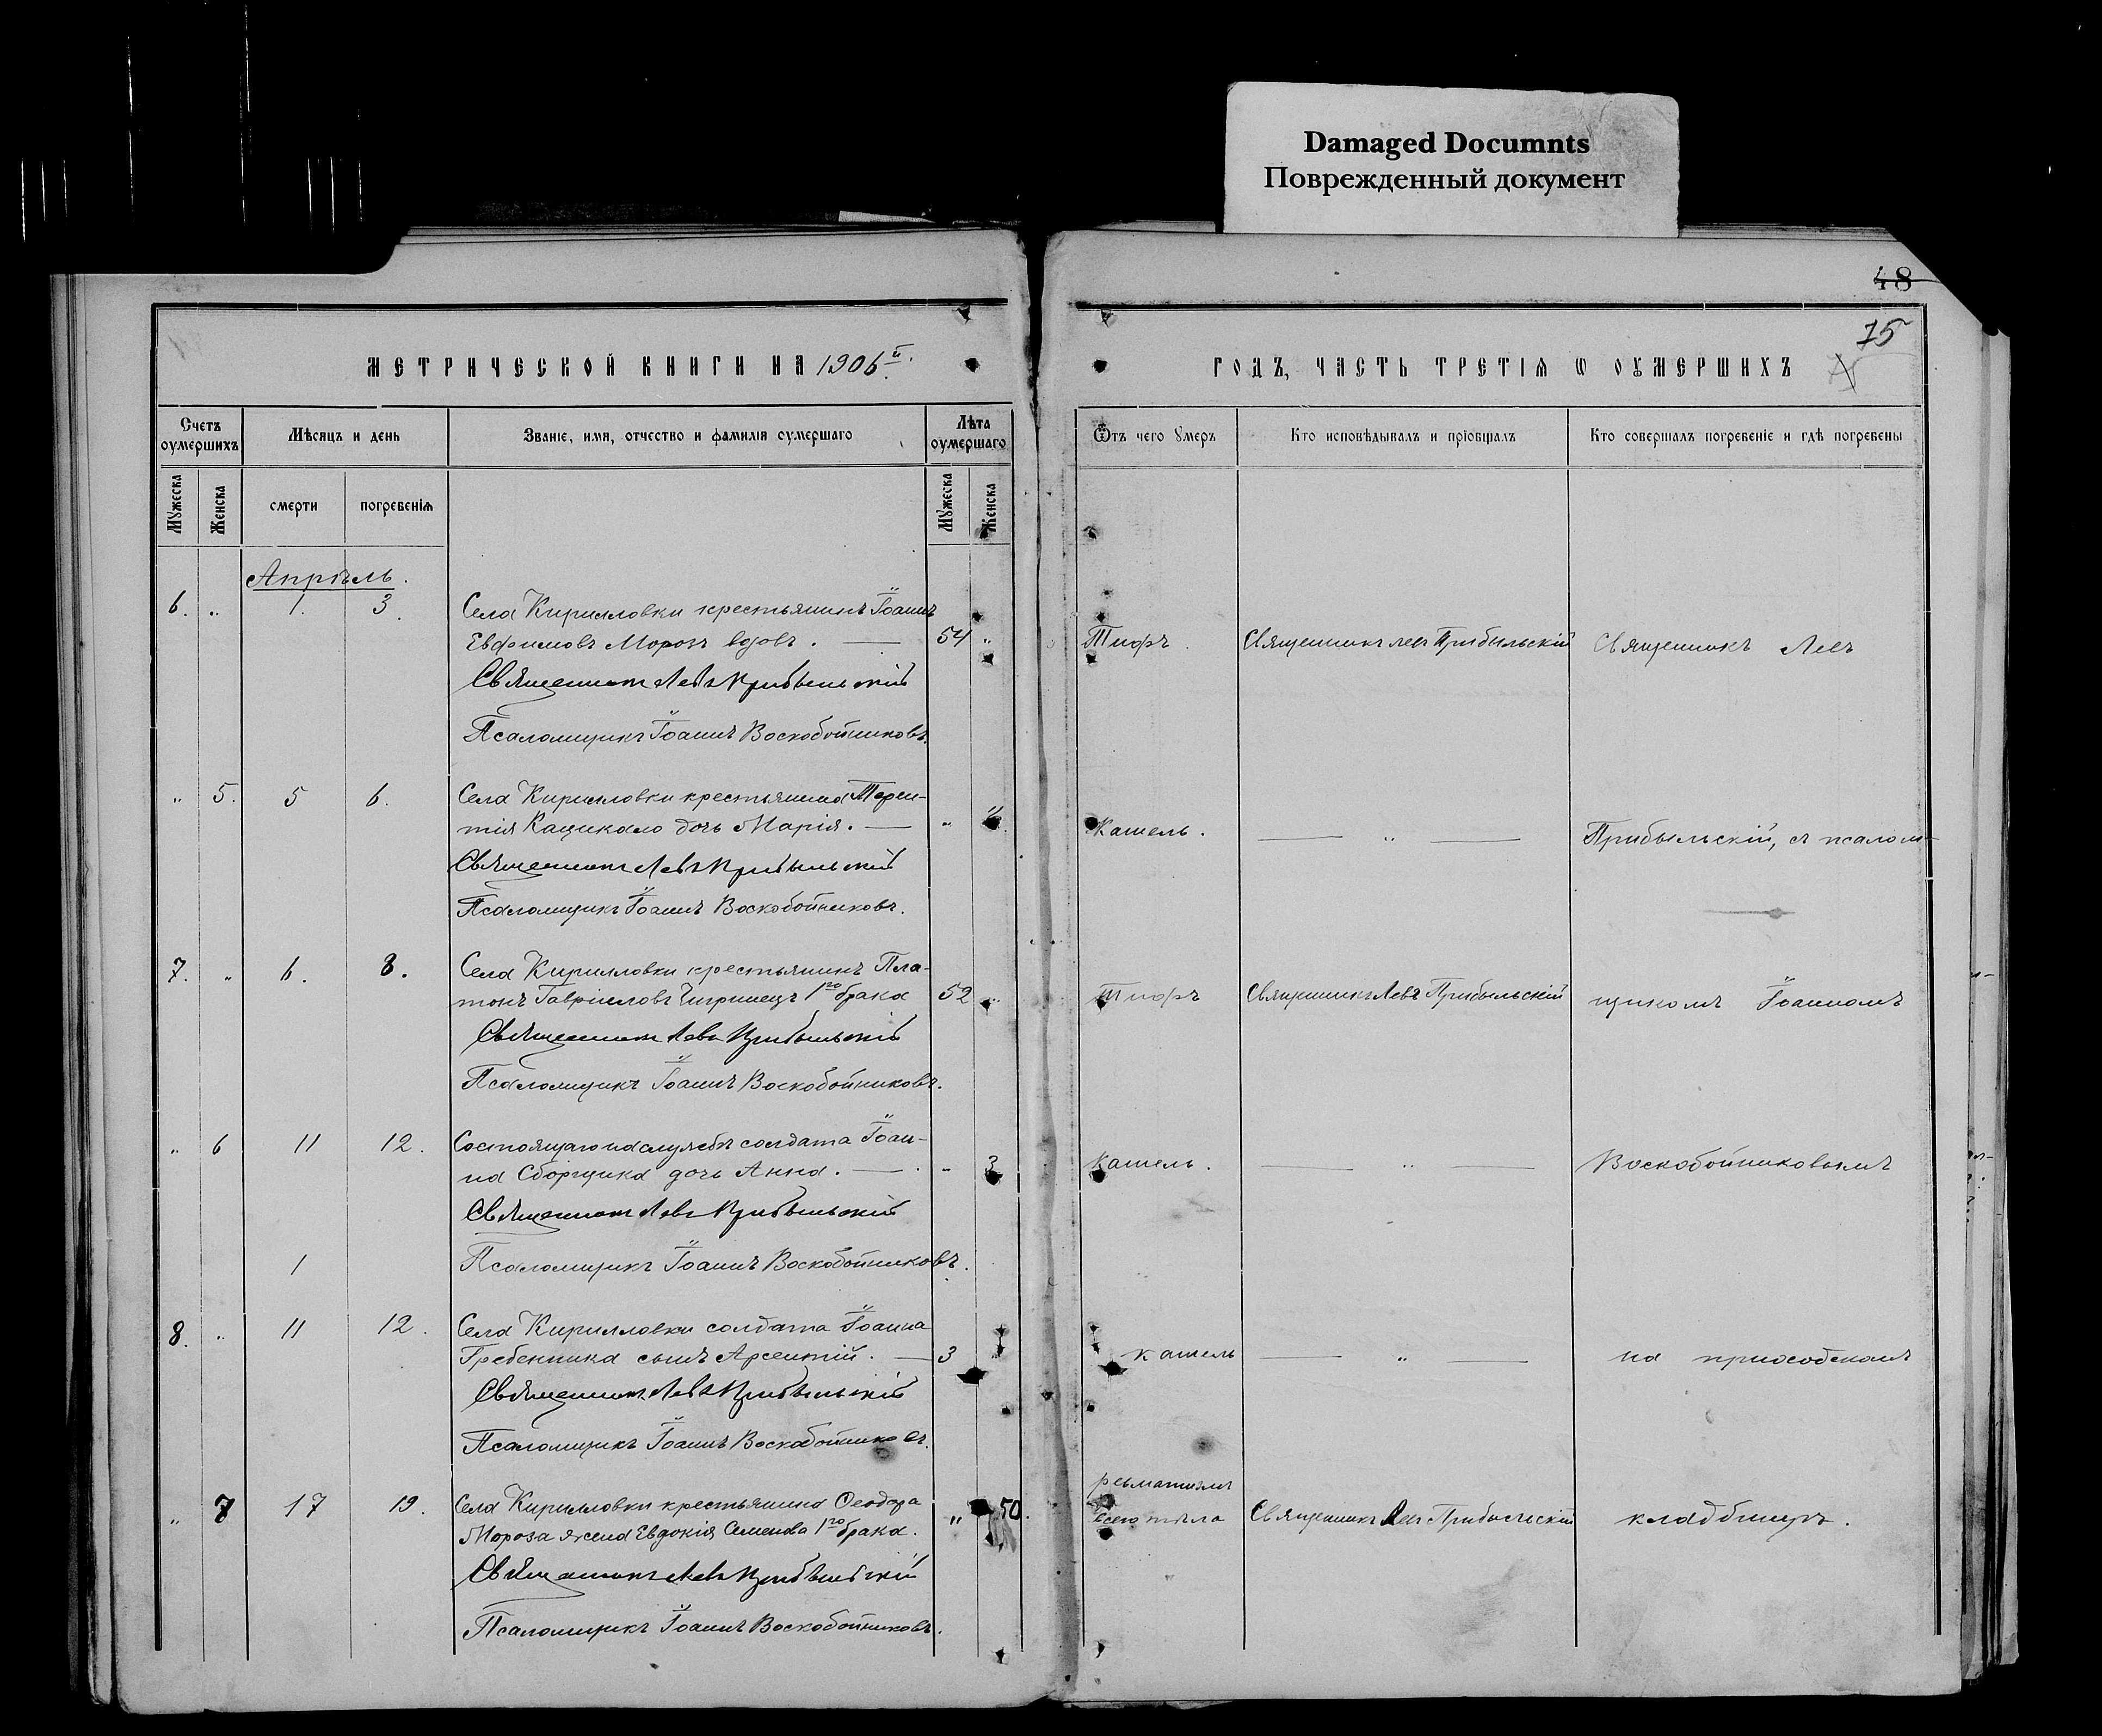 Damaged Documnts
Поврежденный документ
48
75
МЕТРИЧЕСКОЙ КНИГИ НА 1906й.
ГОДЪ, ЧАСТЬ ТРЕТІЯ Ѡ ОУМЕРШИХЪ
Счетъ оумершихъ
Мѣсяцъ и день
Званіе, имя, отчество и фамилія оумершаго
Лѣта оумершаго
Ѿтъ чего Умеръ
Кто исповѣдывалъ и пріобщалъ
Кто совершалъ погребеніе и гдѣ погребены
Мужеска
Женска
смерти
погребенія
Мужеска
Женска
Апрѣль.
6. „ 1. 3. Села Кирилловки крестьянинъ Іоаннъ
Евфимовъ Морозъ вдовъ. — 54 „ Тифъ. Священникъ Левъ Прибыльскій Священникъ Левъ
Священникъ Левъ Прибыльскій
Псаломщикъ Іоаннъ Воскобойниковъ.
„ 5. 5 6. Села Кирилловки крестьянина Терен-
тія Кацикало дочь Марія. — „ Кашель. — „ — Прибыльскій, съ псалом-
Священникъ Левъ Прибыльскій
Псаломщикъ Іоаннъ Воскобойниковъ.
7. „ 6. 8. Села Кирилловки крестьянинъ Пла-
тонъ Гавріиловъ Чигринецъ 1го брака 52 „ Тифъ Священникъ Левъ Прибыльскій щикомъ Іоанномъ
Священникъ Левъ Прибыльскій
Псаломщикъ Іоаннъ Воскобойниковъ.
„ 6 11 12. Состоящаго на службѣ солдата Іоан-
на Сборщика дочь Анна. — „ 3 Кашель. — „ — Воскобойниковымъ
Священникъ Левъ Прибыльскій
1 Псаломщикъ Іоаннъ Воскобойниковъ.
8. „ 11 12. Села Кирилловки солдата Іоанна
Гребенника сынъ Арсентій. — 3 кашель — „ — на приходскомъ
Священникъ Левъ Прибыльскій
Псаломщикъ Іоаннъ Воскобойниковъ.
„ 7 17 19. Села Кирилловки крестьянина Ѳеодора
Мороза жена Евдокія Семенова 1го брака. „ 50. ревматизмъ
всего тѣла Священникъ Левъ Прибыльскій кладбищѣ.
Священникъ Левъ Прибыльскій
Псаломщикъ Іоаннъ Воскобойниковъ.